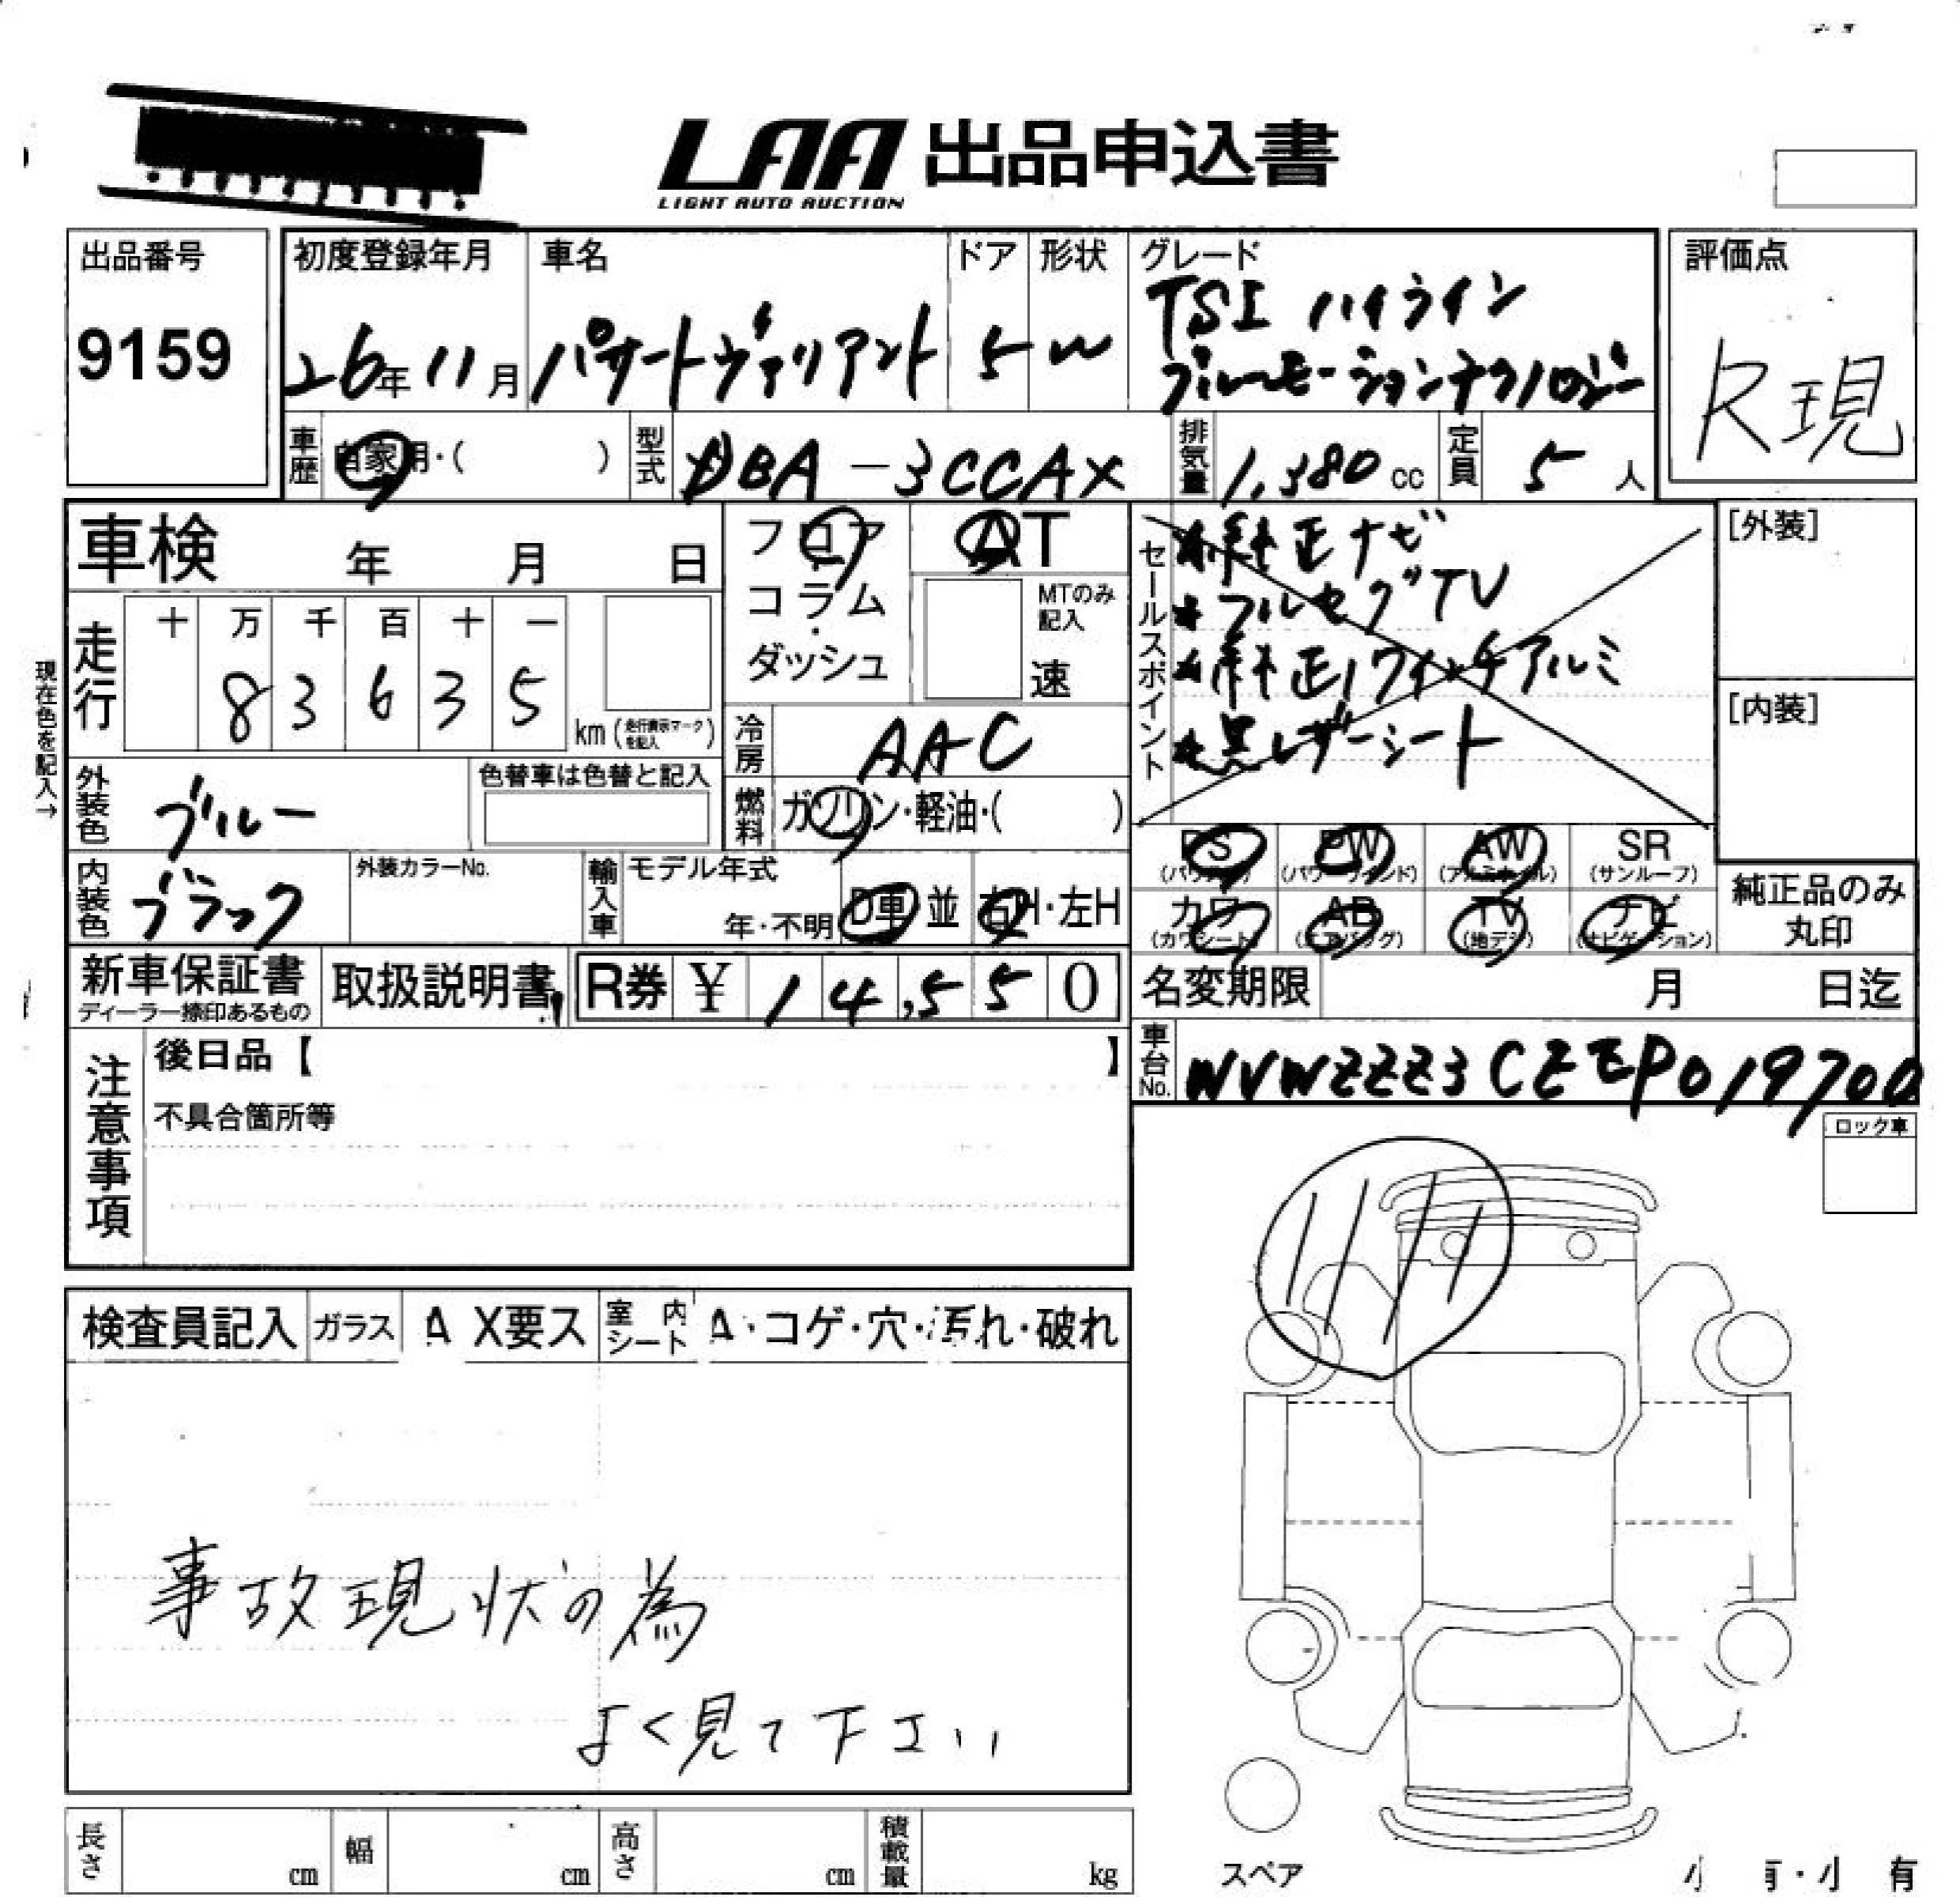 LAA 出品申込書
LIGHT AUTO AUCTION
出品番号
9159
初度登録年月
26年11月
車名
パサートヴァリアント
ドア
5
形状
W
グレード
TSI ハイライン
ブルーモーションテクノロジー
評価点
R現
車歴
自家用・( )
型式
DBA-3CCAX
排気量
1,380cc
定員
5人
車検 年 月 日
フロア
コラム
・
ダッシュ
AT
MTのみ記入
速
セールスポイント
純正ナビ
フルセグTV
純正17インチアルミ
黒レザーシート
[外装]
[内装]
現在色を記入→
走行
十 万 千 百 十 一
8 3 6 3 5
km(走行表示マークを記入)
冷房
AAC
外装色
ブルー
色替車は色替と記入
燃料
ガソリン・軽油・( )
内装色
ブラック
外装カラーNo.
輸入車
モデル年式
年・不明
D車 並
右H・左H
PS PW AW SR
(パワステ) (パワーウインド) (アルミホイル) (サンルーフ)
カワ AB TV ナビ
(カワシート) (エアバッグ) (地デジ) (ナビゲーション)
純正品のみ
丸印
新車保証書
ディーラー捺印あるもの
取扱説明書
R券 ¥ 14,550
名変期限 月 日迄
車台No.
WVWZZZ3CZEP019700
注意事項
後日品【 】
不具合箇所等
ロック車
検査員記入 ガラス A X要ス 室内シート A・コゲ・穴・汚れ・破れ
事故現状の為
よく見て下さい
長さ cm 幅 cm 高さ cm 積載量 kg
スペア
小 有・小 有